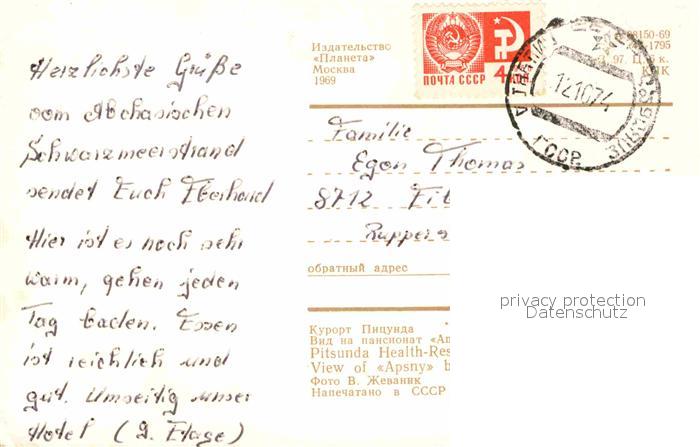 Herzlichste Grüße
vom Abchasischen
Schwarzmeerstrand
sendet Euch Eberhard
Hier ist es noch sehr
warm, gehen jeden
Tag baden. Essen
ist reichlich und
gut. Umseitig unser
Hotel (2. Etage)
Издательство
«Планета»
Москва
1969
ПОЧТА СССР 4
8150-69
-1795
97. Ц к.
КНК
12 10 74
ГССР
Familie
Egon Thomas
8712 Eib
Ruppers
обратный адрес
privacy protection
Datenschutz
Курорт Пицунда
Вид на пансионат «Ап
Pitsunda Health-Res
View of «Apsny» b
Фото В. Жеваник
Напечатано в СССР